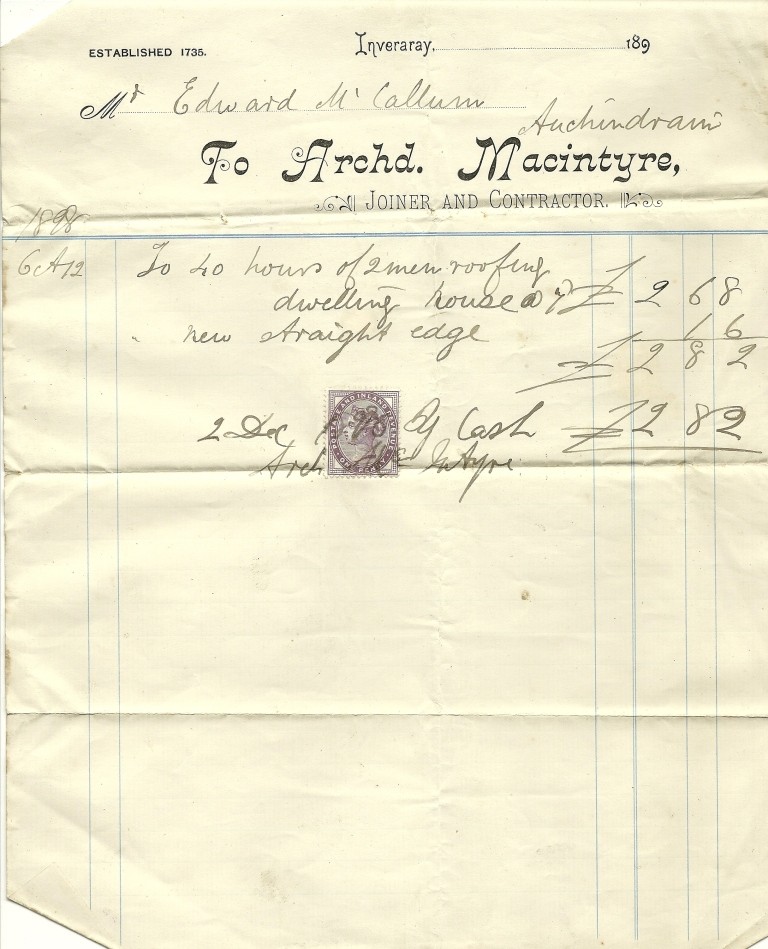 ESTABLISHED 1735.
Inveraray, 189
Mr Edward McCallum
Auchindrain
To Archd. Macintyre,
JOINER AND CONTRACTOR.
1898
To 40 hours of 2 men roofing
dwelling house @ 7 £ 2 6 8
" new straight edge 1 6
£ 2 8 2
2 Dec By Cash £ 2 8 2
POSTAGE AND INLAND REVENUE
Arch Intyre